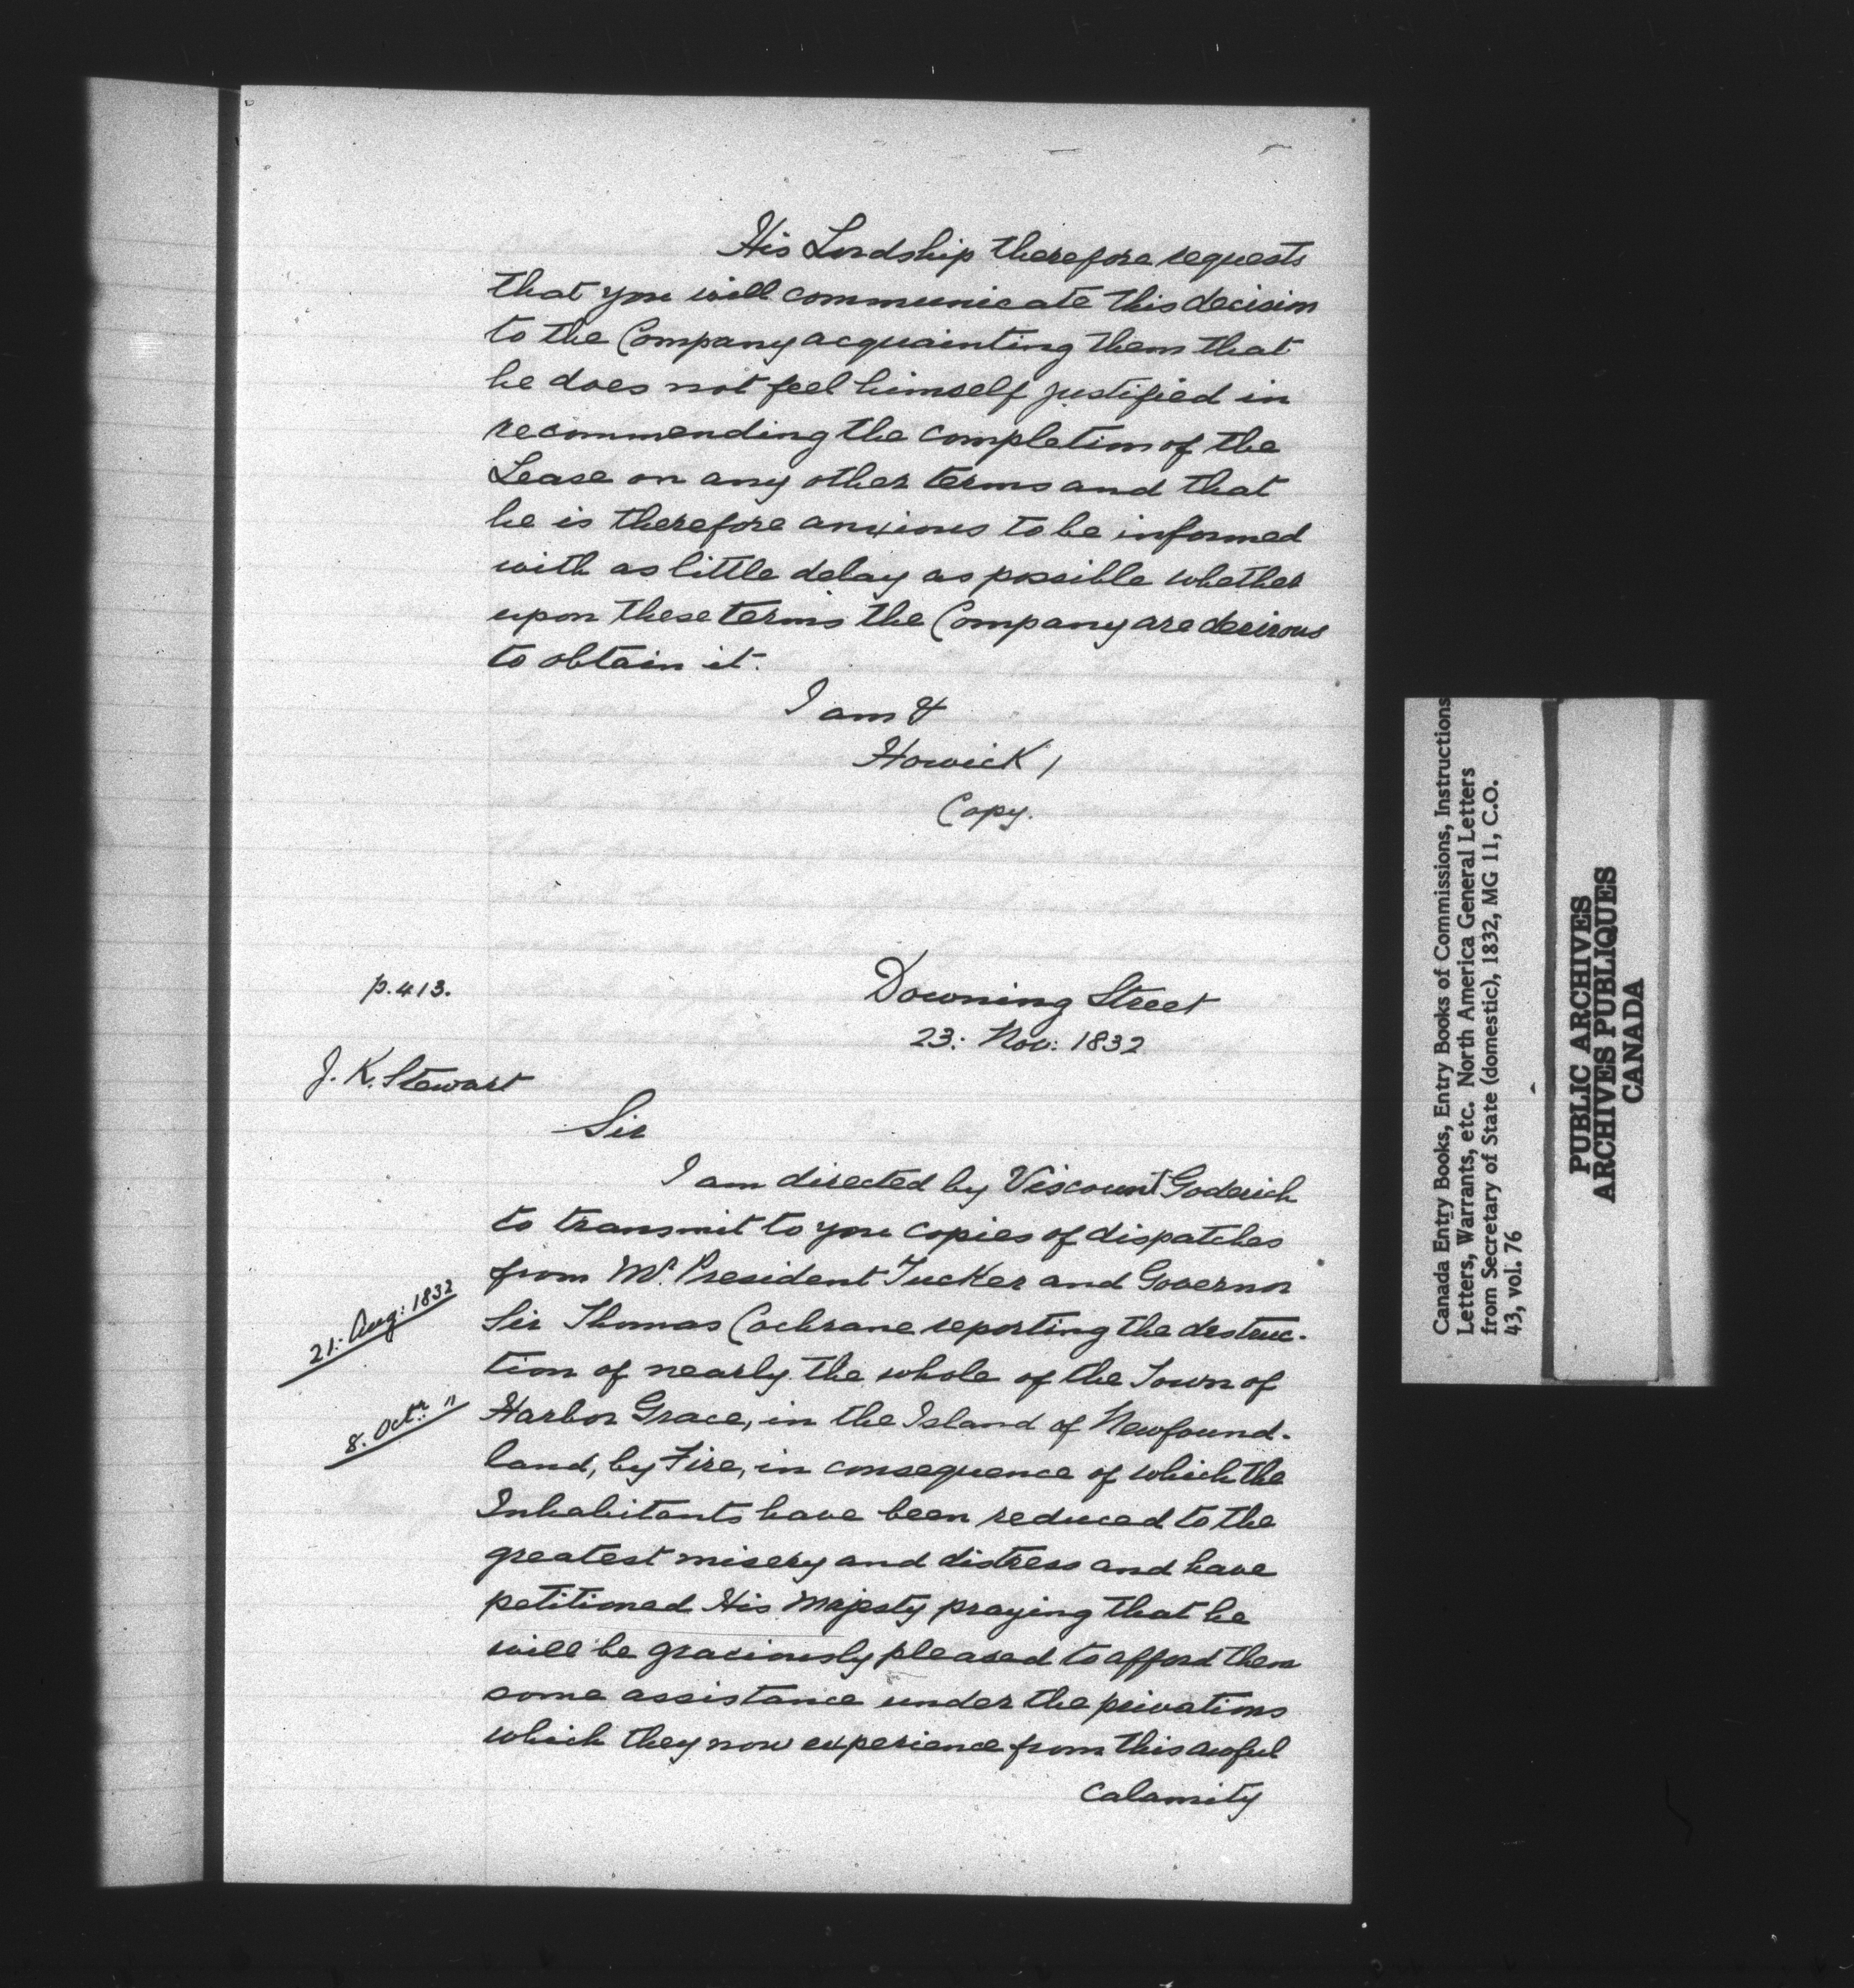 His Lordship therefore requests
that you will communicate this decision
to the Company acquainting them that
he does not feel himself justified in
recommending the completion of the
Lease on any other terms and that
he is therefore anxious to be informed
with as little delay as possible whether
upon these terms the Company are desirous
to obtain it.
I am &
Howick /
Copy.
p. 413.
Downing Street
23: Nov: 1832
J. K. Stewart
Sir
I am directed by Viscount Goderich
to transmit to you copies of dispatches
from Mr. President Tucker and Governor
21: Aug: 1832
Sir Thomas Cochrane reporting the destruc-
tion of nearly the whole of the Town of
8. Octr. "
Harbor Grace, in the Island of Newfound-
land, by Fire, in consequence of which the
Inhabitants have been reduced to the
greatest misery and distress and have
petitioned His Majesty praying that he
will be graciously pleased to afford them
some assistance under the privations
which they now experience from this awful
calamity
Canada Entry Books, Entry Books of Commissions, Instructions
Letters, Warrants, etc. North America General Letters
from Secretary of State (domestic), 1832, MG 11, C.O.
43, vol. 76
PUBLIC ARCHIVES
ARCHIVES PUBLIQUES
CANADA